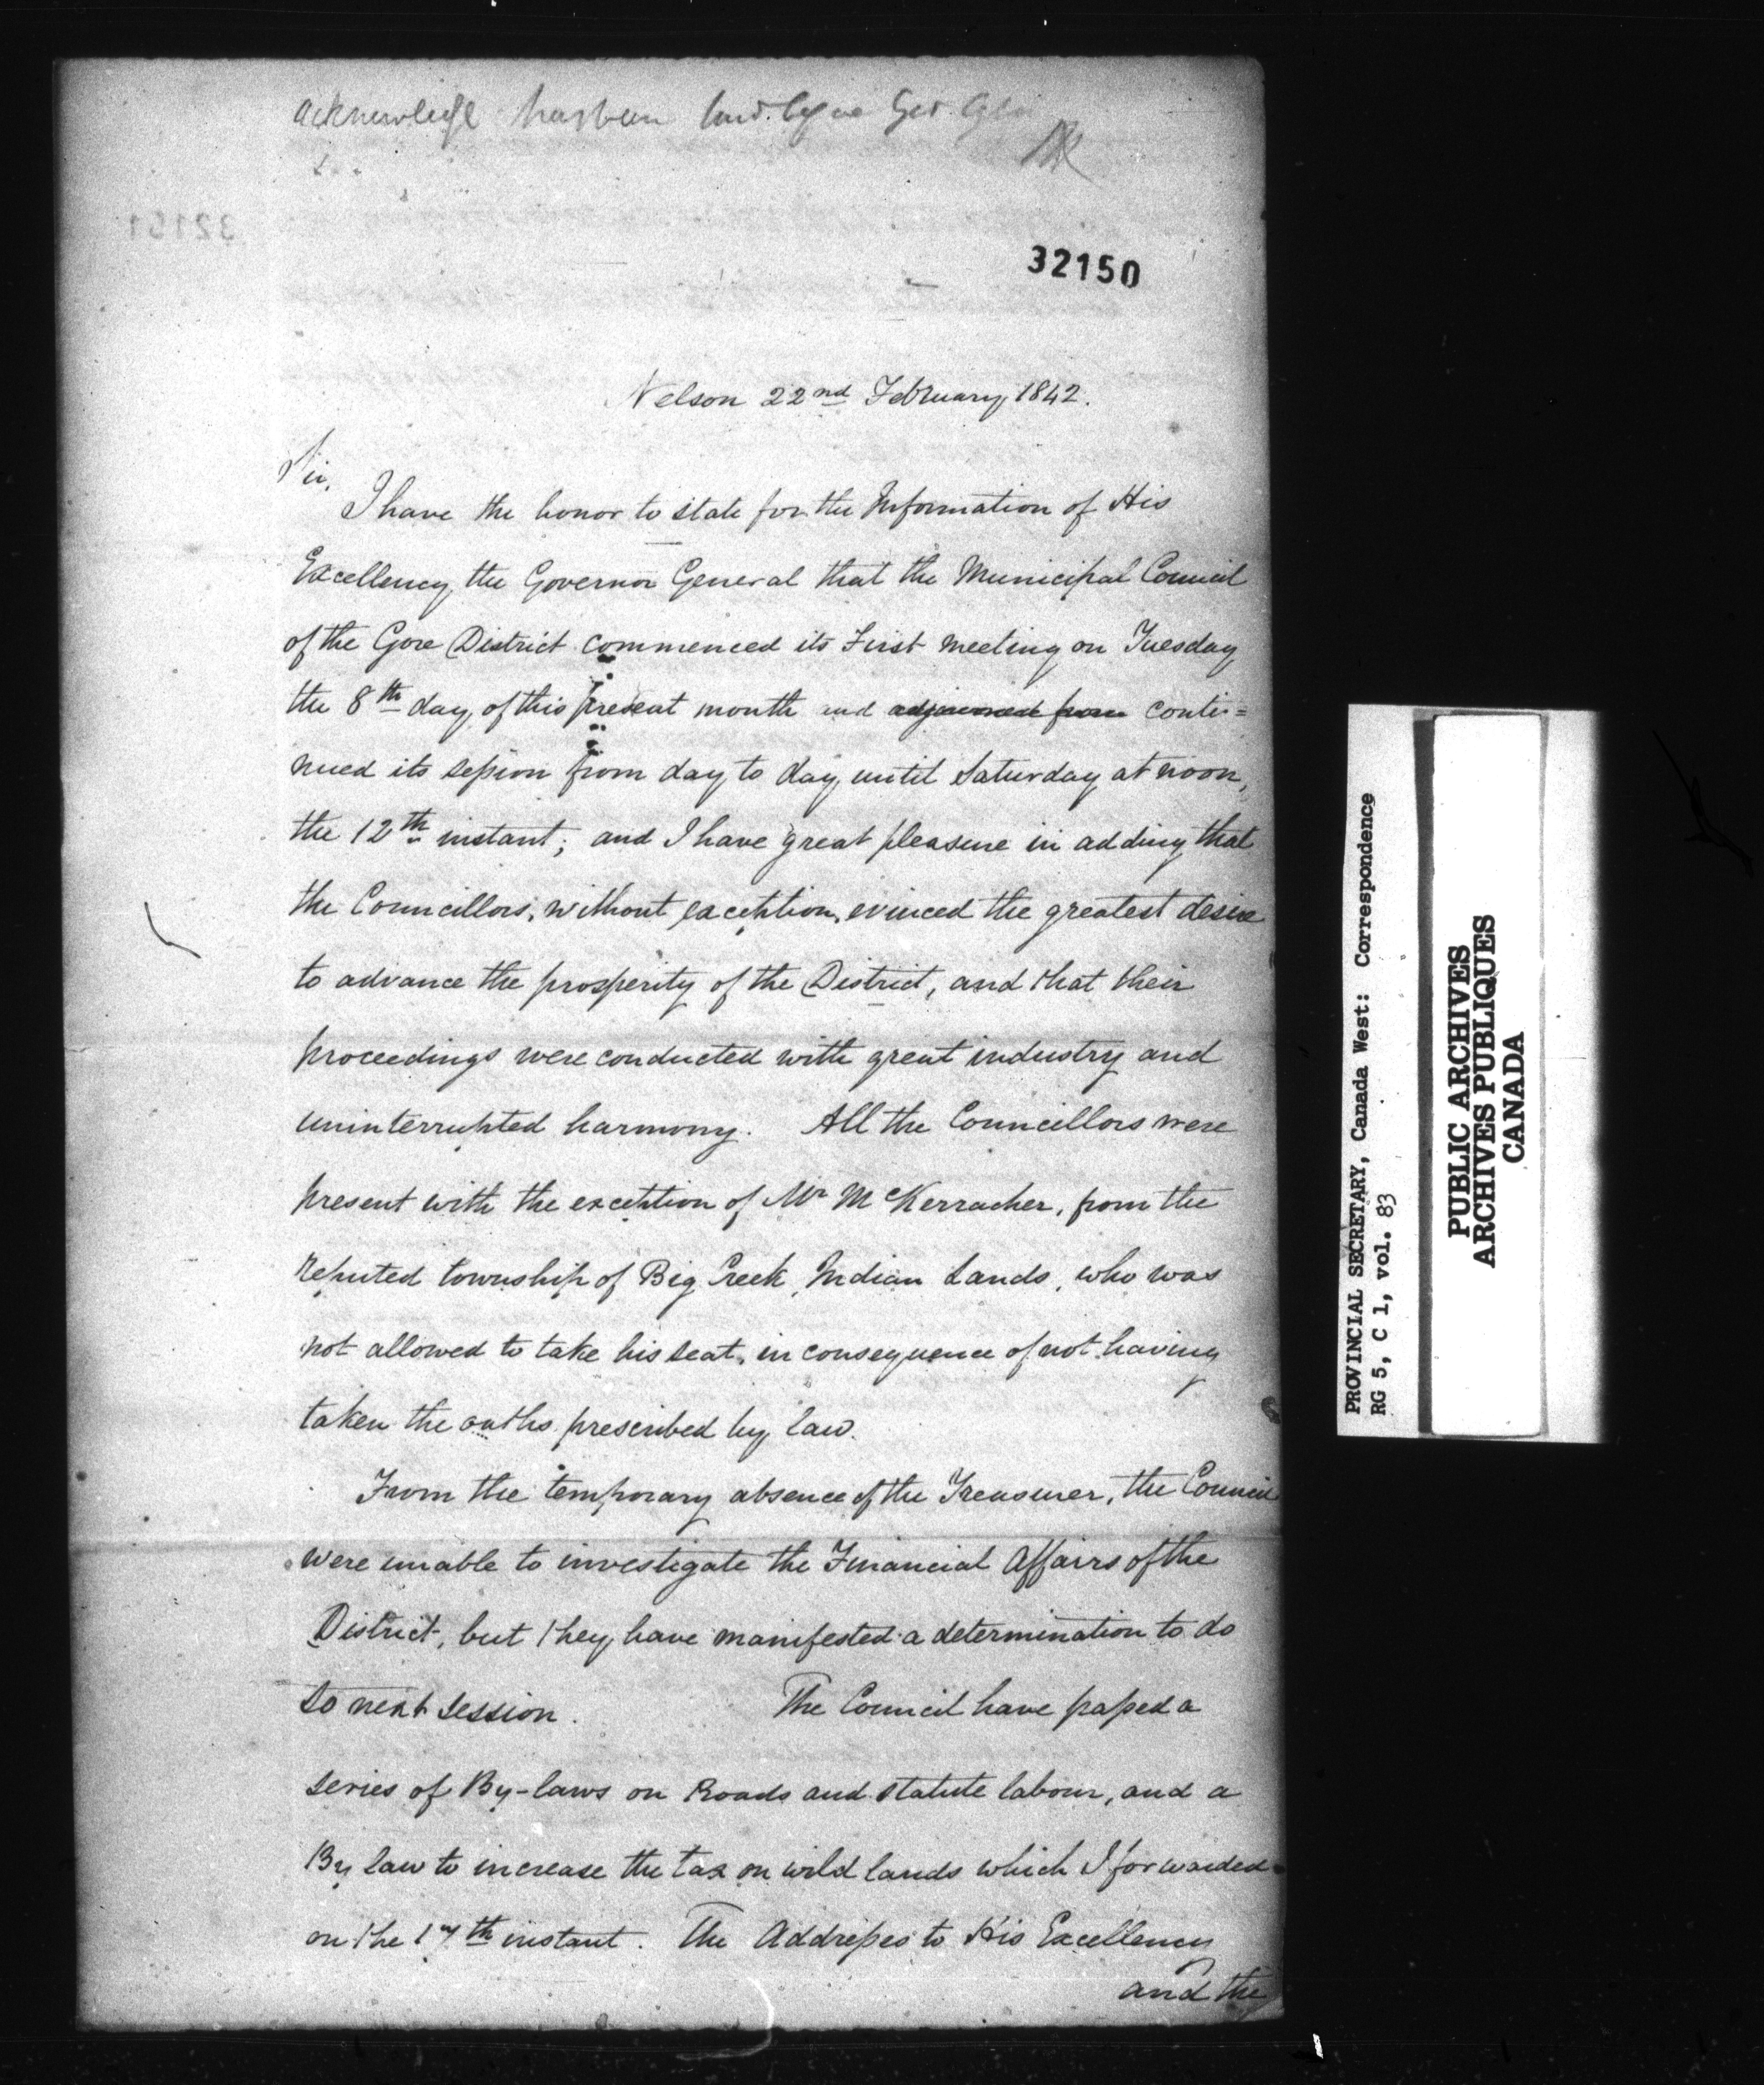 acknowledge has been
32150
Nelson 22nd February, 1842.
Sir,
I have the honor to state for the Information of His
Excellency, the Governor General that the Municipal Council
of the Gore District commenced its First meeting on Tuesday
the 8th day, of this present month and adjourned from conti=
nued its session from day to day, until Saturday at noon,
the 12th instant; and I have great pleasure in adding that
the Councillors, without exception, evinced the greatest desire
to advance the prosperity of the District, and that their
proceedings were conducted with great industry and
uninterrupted harmony. All the Councillors were
present with the exception of Mr McKerracher, from the
reputed township of Big Creek, Indian Lands, who was
not allowed to take his seat, in consequence of not having
taken the oaths prescribed by law.
From the temporary absence of the Treasurer, the Council
were unable to investigate the Financial Affairs of the
District, but they have manifested a determination to do
so next session. The Council have passed a
series of By-laws on Roads and statute labour, and a
By law to increase the tax on wild lands which I forwarded
on the 17th instant. The Addresses to His Excellency
and the
PROVINCIAL SECRETARY, Canada West: Correspondence
RG 5, C 1, vol. 83
PUBLIC ARCHIVES
ARCHIVES PUBLIQUES
CANADA